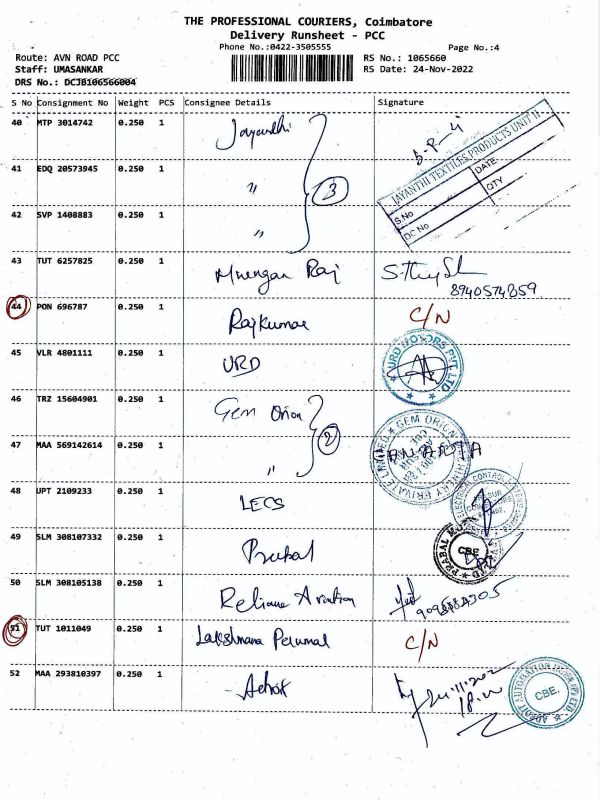 THE PROFESSIONAL COURIERS, Coimbatore
Delivery Runsheet - PCC
Phone No.:0422-3505555 Page No.:4
Route: AVN ROAD PCC RS No.: 1065660
Staff: UMASANKAR RS Date: 24-Nov-2022
DRS No.: DCJB106566004
S No Consignment No Weight PCS Consignee Details Signature
40 MTP 3014742 0.250 1 Jayandhi
JAYANTHI TEXTILES PRODUCTS UNIT II
DATE
S.No QTY
DC No
41 EDQ 20573945 0.250 1 "
3
42 SVP 1408883 0.250 1 "
43 TUT 6257825 0.250 1 Murengan Raj
8940574859
44 PON 696787 0.250 1 Rajkumar C/N
45 VLR 4801111 0.250 1 URD
URD MOTORS PVT. LTD
46 TRZ 15604901 0.250 1 Gem Orion
2
GEM ORION MACHINERY PRIVATE LIMITED
47 MAA 569142614 0.250 1 " ANANTA
48 UPT 2109233 0.250 1 LECS
49 SLM 308107332 0.250 1 Prabal
CBE
50 SLM 308105138 0.250 1 Reliance
51 TUT 1011049 0.250 1 Lakshmana Perumal C/N
52 MAA 293810397 0.250 1 Ashok
CBE.